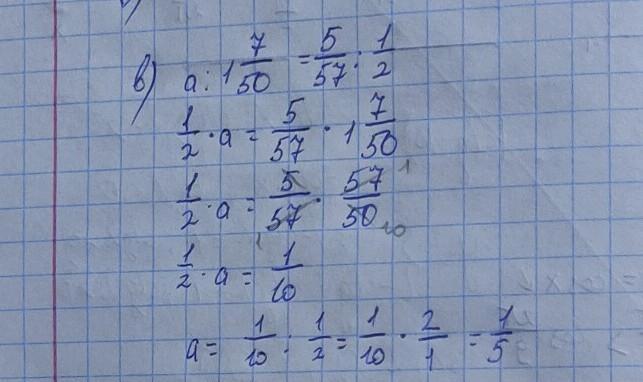 в) a : 1 7/50 = 5/57 : 1/2
1/2 · a = 5/57 · 1 7/50
1/2 · a = 5/57 · 57/50 1 1 10
1/2 · a = 1/10
a = 1/10 : 1/2 = 1/10 · 2/1 = 1/5